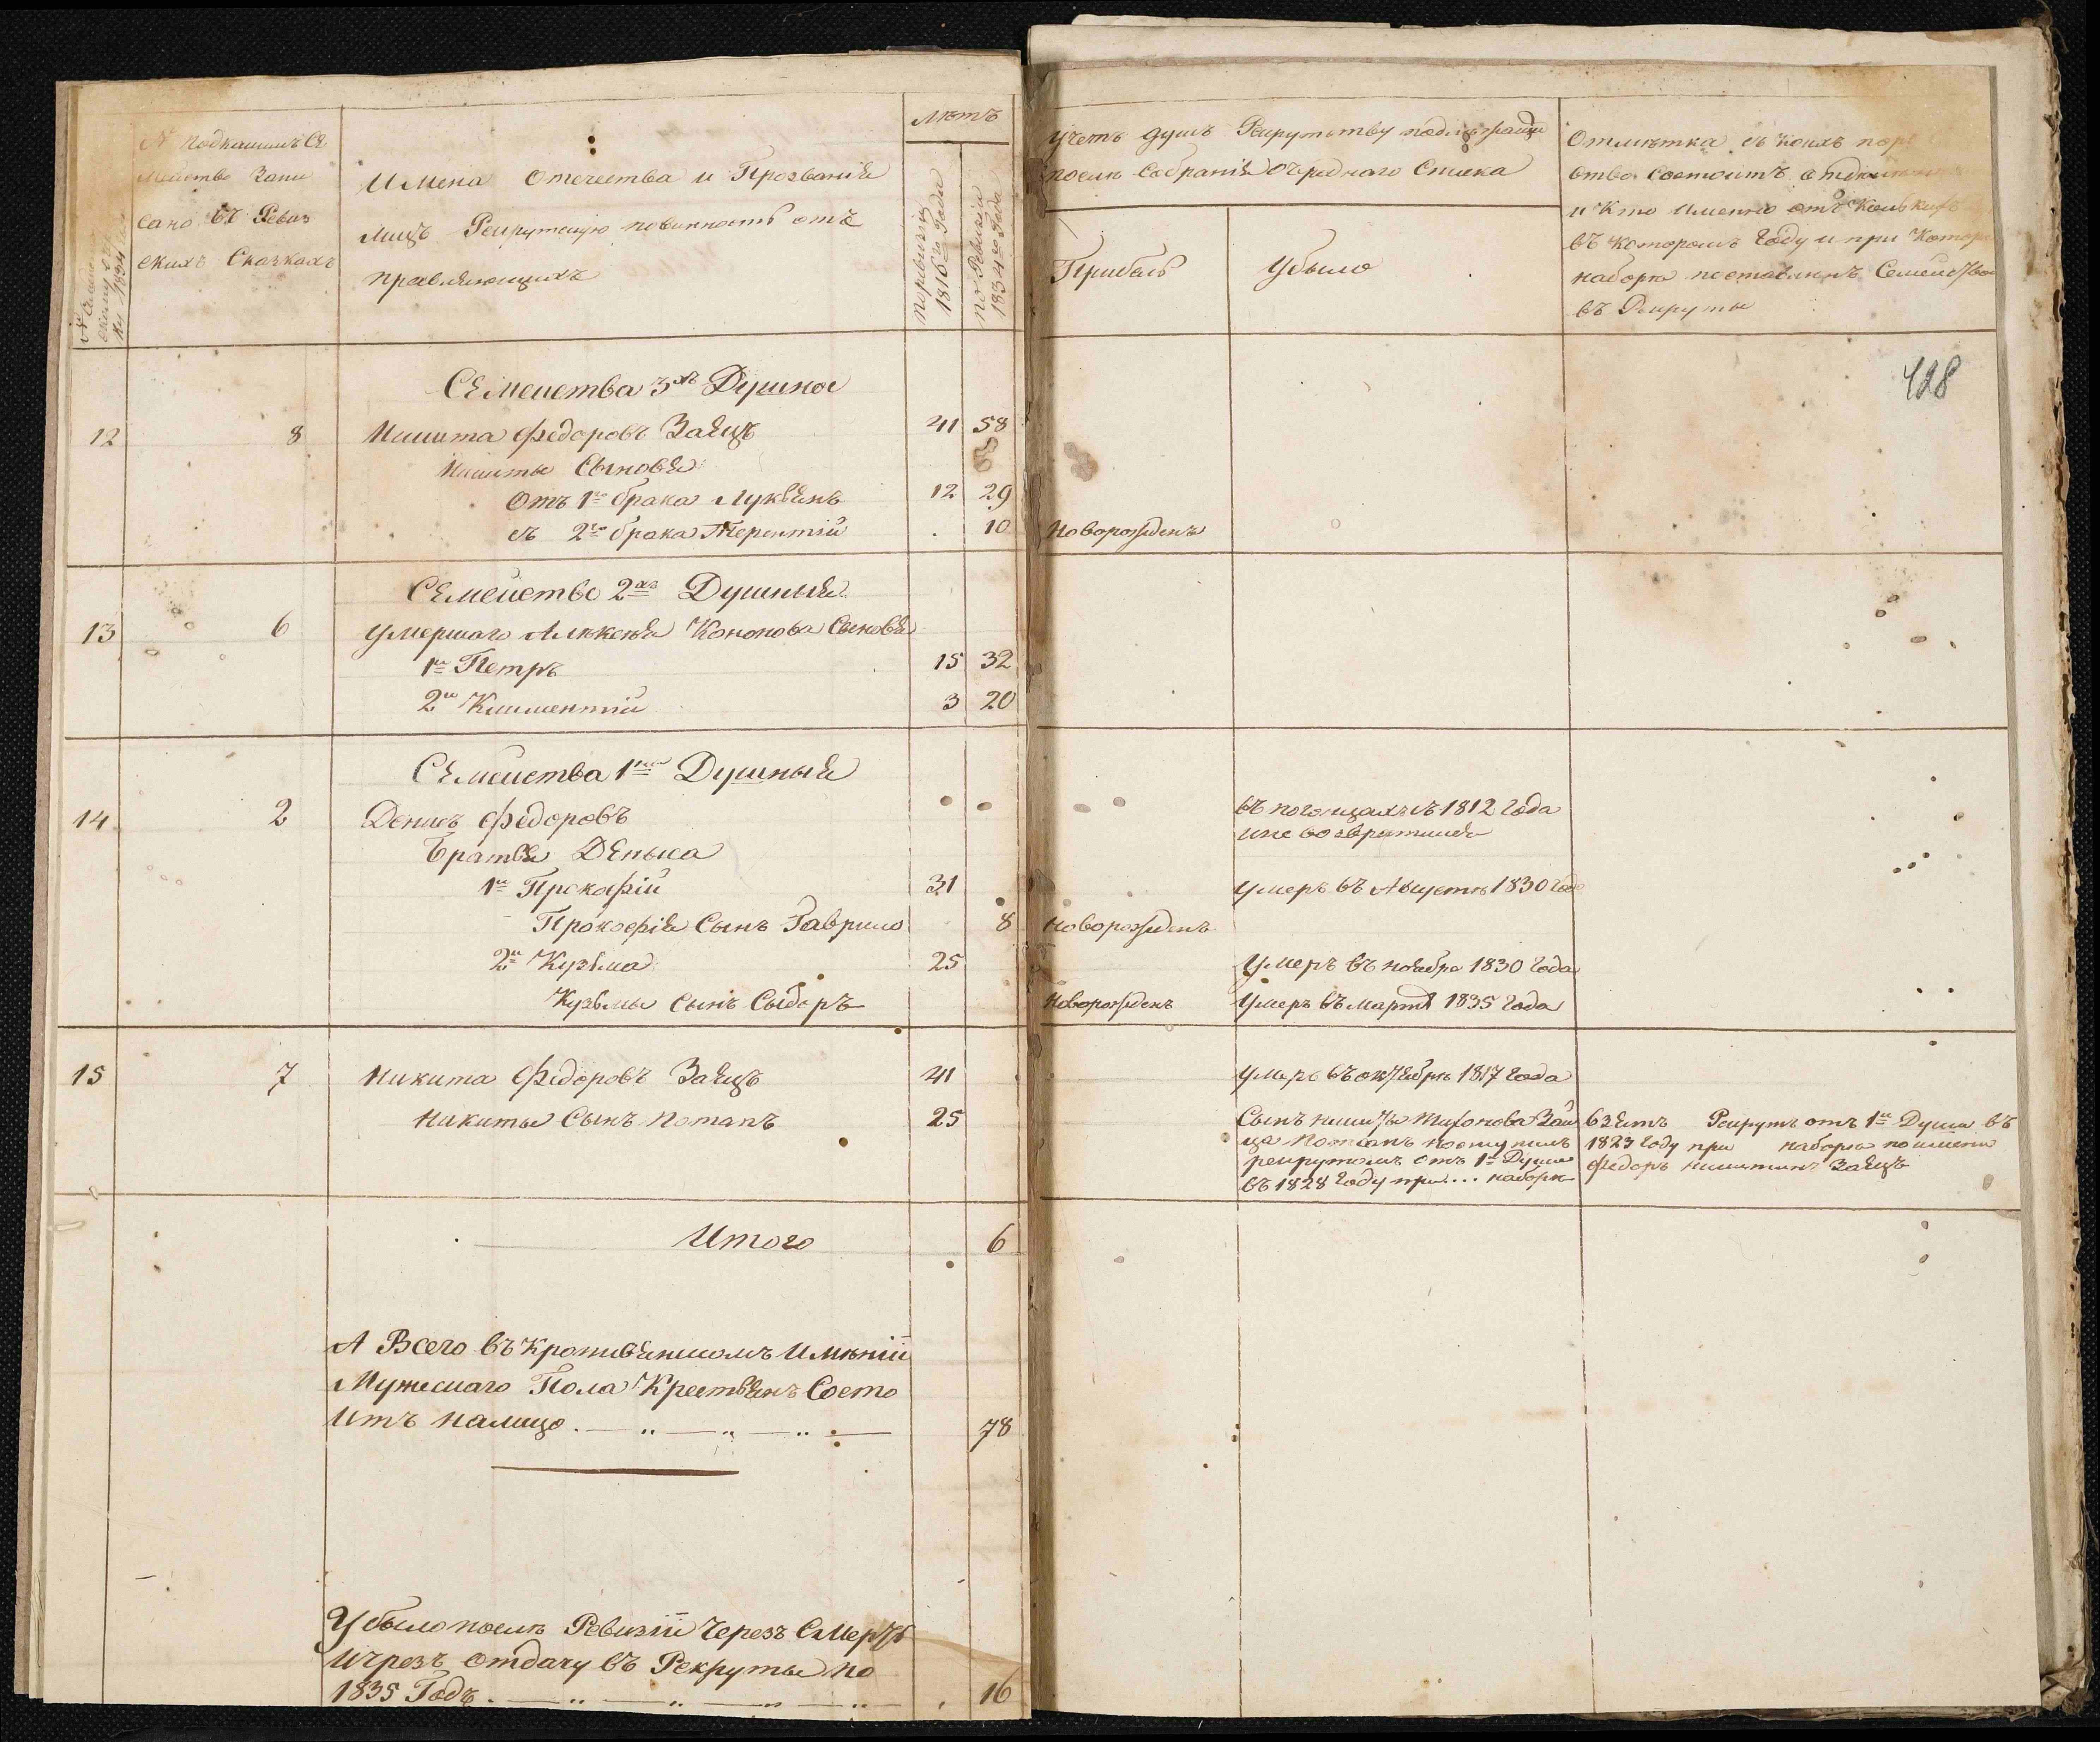 № подкоимъ Се
мейство Запи
сано въ Ревиз
скихъ Сказкахъ
Имена Отечества и Прозвания
лицъ Рекрутскую повинность отъ
правляющихъ
Лѣтъ
поревизіи
1816го Года
по Ревизіи
1834го Года
Учетъ душъ Рекрутству подлежащи
послѣ Собранія Очереднаго Списка
Прибыль
Убыло
Отмѣтка съ коихъ
ства состоитъ
и Кто именно отъ Колькихъ
въ которомъ Году и при Котор
наборѣ поставленъ Семейством
въ Рекруты
428
Семейства 3хъ Душное
12 8 Никита Федоровъ Заяцъ 41 58
Никиты Сыновья
Отъ 1го брака Лукьянъ 12 29
съ 2го брака Терентій . 10 Новорожденъ
Семейство 2хъ Душныя
13 6 Умершаго Алексея Кононова Сыновья
1й Петръ 15 32
2й Климентій 3 20
Семейства 1но Душныя
14 2 Денисъ Федоровъ въ погонцахъ съ 1812 Года
и не возвратился
Братья Дениса
1й Прокофій 31 Умеръ въ Августѣ 1830 Года
Прокофія Сынъ Гаврило 8 Новорожденъ
2й Кузьма 25 Умеръ въ ноябре 1830 Года
Кузьмы Сынъ Сыдоръ Новорожденъ Умеръ въ марте 1835 Года
15 7 Никита Федоровъ Заяцъ 41 Умеръ въ октябрѣ 1817 Года
Никиты Сынъ Потапъ 25 Сынъ Никиты Тихонова Зай
ца Потапъ поступилъ
рекрутомъ отъ 1й Души
въ 1828 Году при.... наборѣ
взятъ Рекрутъ отъ 1й Души въ
1823 Году при наборѣ по имени
Федоръ Никитинъ Заяцъ
Итого 6
А Всего въ Кропивянскомъ Имѣніи
Мужескаго Пола Крестьянъ Состо
итъ налицо 78
Убыло послѣ Ревизіи Через Смерть
и чрезъ отдачу въ Рекруты по
1835 Годъ . 16